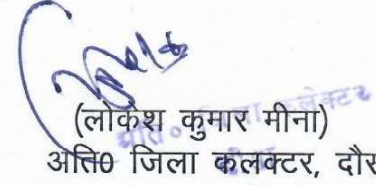 (लोकेश कुमार मीना)
अति० जिला कलक्टर, दौस